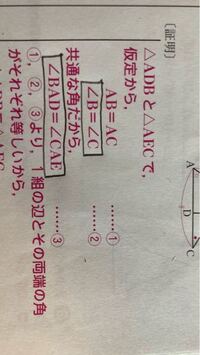 〔証明〕
△ADBと△AECで，
仮定から，
AB=AC ……①
∠B=∠C ……②
共通な角だから，
∠BAD=∠CAE ……③
①，②，③より，1組の辺とその両端の角
がそれぞれ等しいから，
A
D
C